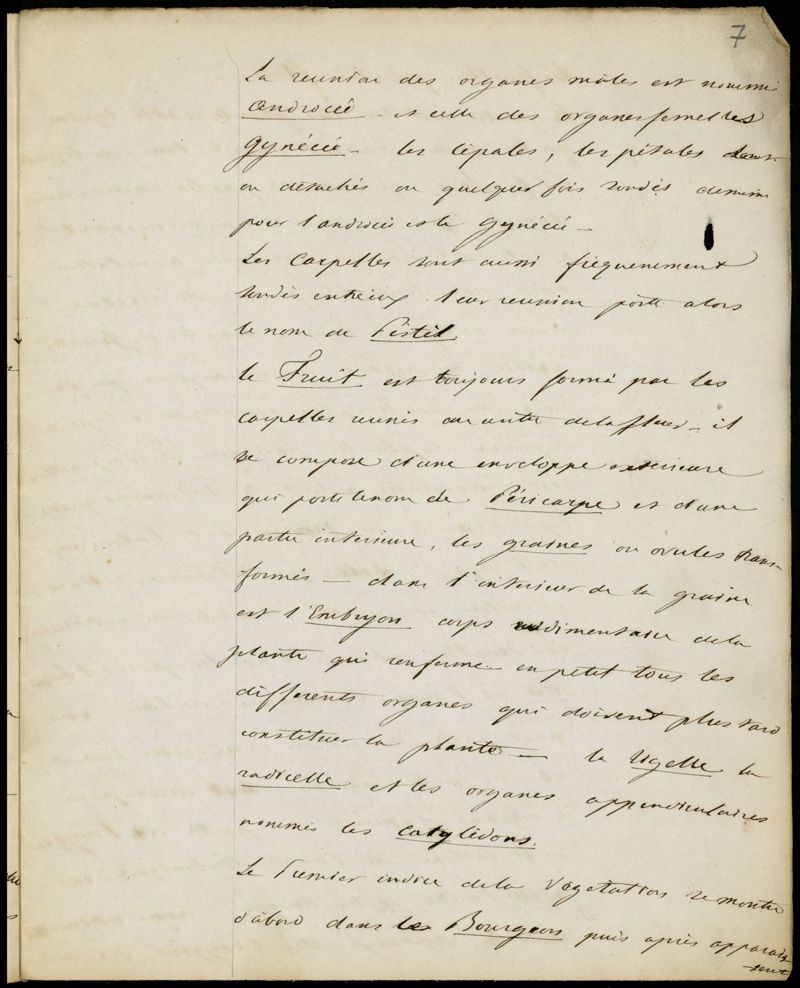 7
La reunion des organes mâles est nommé
Androcée - et celle des organes femelles
Gynécée - les cépales, les pétales sont
ou détachés ou quelquefois soudés de même
pour l'androcée et le Gynécée -
Les Carpelles sont aussi fréquemment
soudés entreeux. leur reunion porte alors
le nom de Pistil.
le Fruit est toujours formé par les
carpelles reunis au centre de la fleur - il
se compose d'une enveloppe exterieure
qui porte le nom de Péricarpe et d'une
partie interieure, les graines ou ovules trans-
formés - dans l'interieur de la graine
est l'Embryon corps rudimentaire de la
plante qui renferme en petit tous les
differents organes qui doivent plus tard
constituer la plante - la tigelle la
radicelle et les organes appendiculaires
nommés les Cotylédons.
Le Premier indice de la Végétation se montre
d'abord dans les Bourgeons puis après apparais-
sent